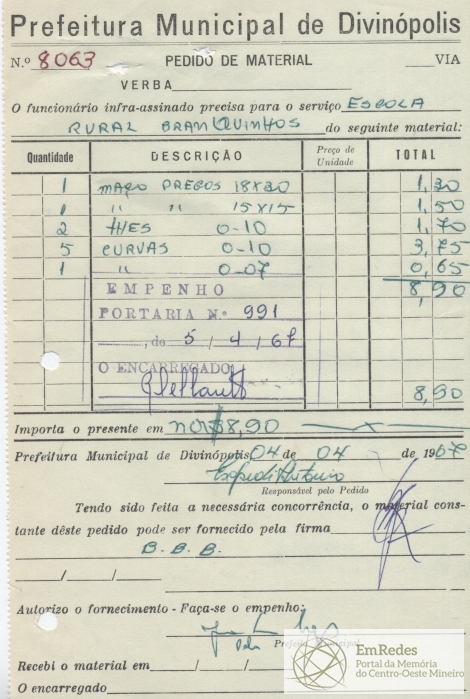 Prefeitura Municipal de Divinópolis
N.º 8063 PEDIDO DE MATERIAL VIA
VERBA
O funcionário infra-assinado precisa para o serviço ESCOLA
RURAL BRANQUINHOS do seguinte material:
Quantidade DESCRIÇÃO Preço de Unidade TOTAL
1 MAÇO PREGOS 18X30 1,30
1 " " 15X15 1,50
2 THES 0-10 1,70
5 CURVAS 0-10 3,75
1 " 0-07 0,65
8,90
EMPENHO
PORTARIA N.º 991
, de 5 / 4 / 67
O ENCARREGADO
8,90
Importa o presente em NCR$8,90
Prefeitura Municipal de Divinópolis 04 de 04 de 1967
Responsável pelo Pedido
Tendo sido feita a necessária concorrência, o material cons-
tante dêste pedido pode ser fornecido pela firma
B.B.B.
/ /
Autorizo o fornecimento - Faça-se o empenho:
Prefeito Municipal
Recebi o material em / /
O encarregado
EmRedes
Portal da Memória
do Centro-Oeste Mineiro